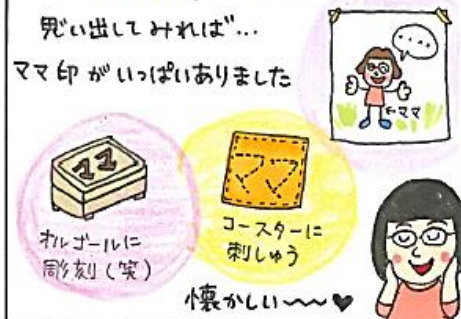 思い出してみれば…
ママ印がいっぱいありました
・・・・
←ママ
ママ
オルゴールに
彫刻(笑)
ママ
コースターに
刺しゅう
懐かしい〜〜♥